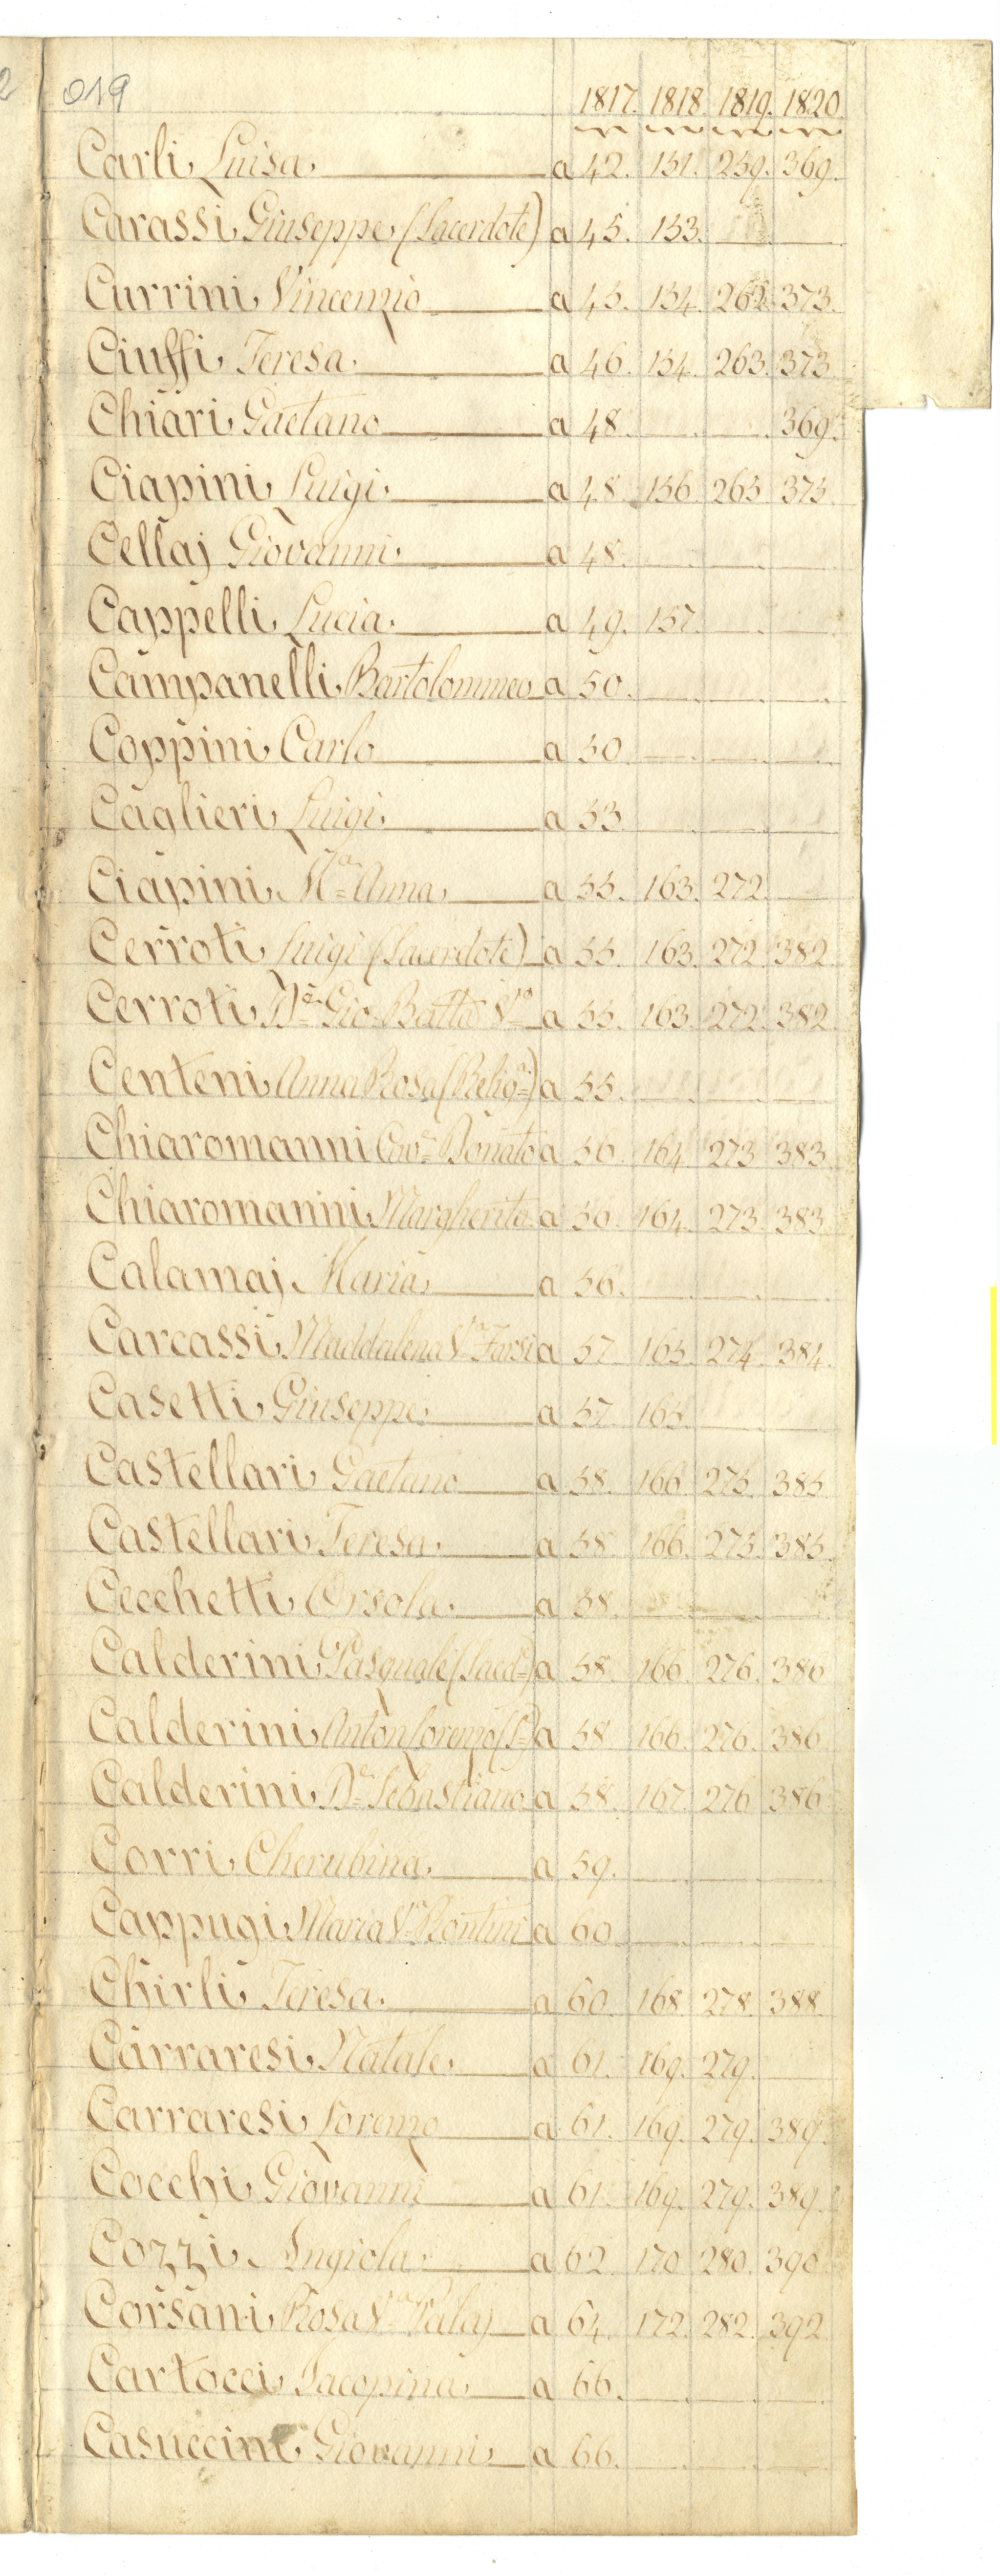 019
1817. 1818. 1819. 1820.
Carli Luisa a 42. 151. 259. 369.
Carassi Giuseppe (Sacerdote) a 45. 153.
Currini Vincenzio a 45. 154. 262. 373.
Ciuffi Teresa a 46. 154. 263. 373.
Chiari Gaetano a 48. 369.
Ciapini Luigi a 48. 156. 265. 375.
Cellaj Giovanni a 48.
Cappelli Lucia a 49. 157.
Campanelli Bartolommeo a 50.
Coppini Carlo a 50
Caglieri Luigi a 53.
Ciapini Mª Anna a 55. 163. 272.
Cerroti Luigi (Sacerdote) a 55. 163. 272. 382.
Cerroti Gio: Batta a 55. 163. 272. 382.
Centeni Anna Rosa (Religª) a 55.
Chiaromanni Cavʳ Donato a 56. 164. 273. 383.
Chiaromanni Margherita a 56. 164. 273. 383.
Calamaj Maria a 56.
Carcassi Maddalena Vª Farsi a 57. 165. 274. 384.
Casetti Giuseppe a 57. 165.
Castellari Gaetano a 58. 166. 275. 385.
Castellari Teresa a 58. 166. 275. 385.
Cecchetti Orsola a 58.
Calderini Pasquale (Sacdᵉ) a 58. 166. 276. 386
Calderini Anton Lorenzo a 58 166. 276. 386.
Calderini Dʳ Sebastiano a 58. 167. 276 386
Corri Cherubina a 59.
Cappugi Maria Vª Rontini a 60
Chirli Teresa a 60. 168. 278. 388.
Carraresi Natale a 61. 169. 279.
Carraresi Lorenzo a 61. 169. 279. 389.
Cocchi Giovanni a 61. 169. 279. 389.
Cozzi Angiola a 62 170 280. 390
Corsani Rosa Vª Palaj a 64. 172. 282. 392
Cartocci Jacopina a 66.
Casuccini Giovanni a 66.